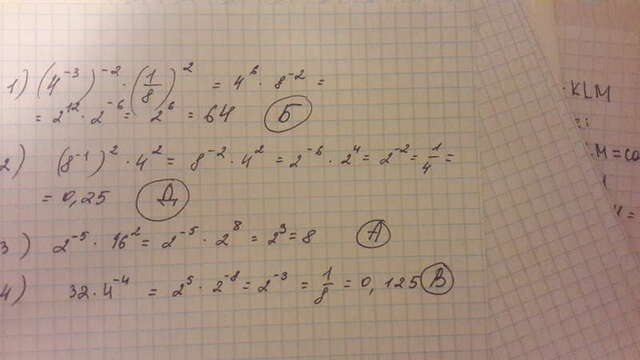 1) (4⁻³)⁻² · (1/8)² = 4⁶ · 8⁻² =
= 2¹² · 2⁻⁶ = 2⁶ = 64 Б
2) (8⁻¹)² · 4² = 8⁻² · 4² = 2⁻⁶ · 2⁴ = 2⁻² = 1/4 =
= 0,25 Д
3) 2⁻⁵ · 16² = 2⁻⁵ · 2⁸ = 2³ = 8 А
4) 32 · 4⁻⁴ = 2⁵ · 2⁻⁸ = 2⁻³ = 1/8 = 0,125 В
KLM